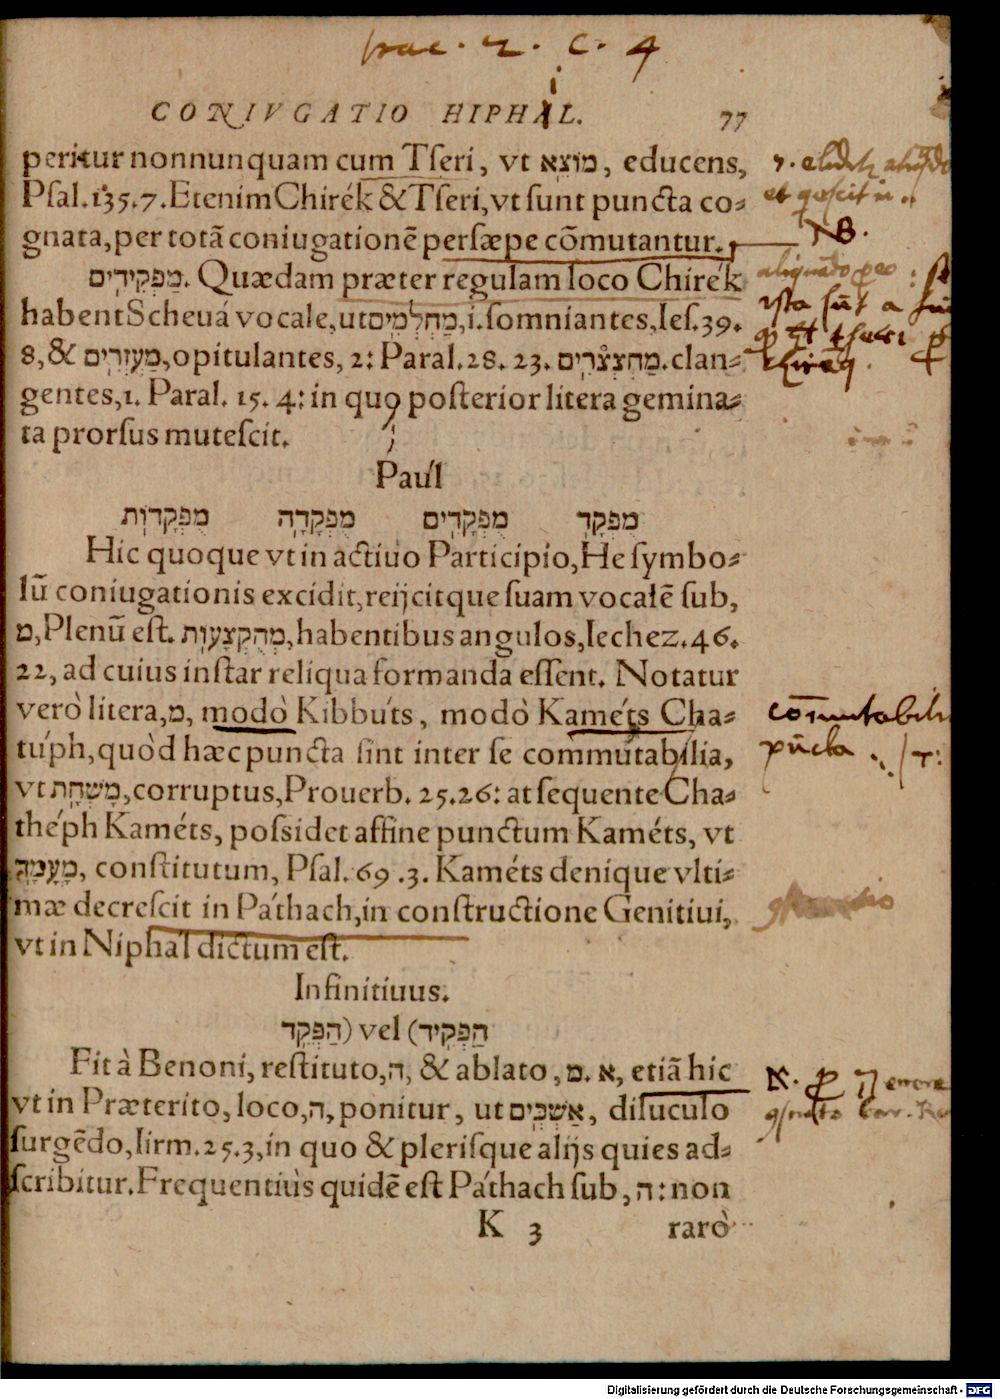 CONIVGATIO HIPHAL. 77
peritur nonnunquam cum Tſeri, vt מוֹצֵא, educens,
Pſal. 135. 7. Etenim Chirék & Tſeri, vt ſunt puncta co-
gnata, per totā coniugationē perſæpe cōmutantur.
NB.
מַפְקִידִים. Quædam præter regulam loco Chirék
habent Scheuá vocale, ut מַחְלְמִים, i. ſomniantes, Ieſ. 39.
8, & מַעְזְרִים, opitulantes, 2: Paral. 28. 23. מַחְצְצְרִים. clan-
gentes, 1. Paral. 15. 4: in quo poſterior litera gemina-
ta prorſus muteſcit.
Paúl
מֻפְקָד מֻפְקָדִים מֻפְקָדָה מֻפְקָדוֹת
Hic quoque vt in actiuo Participio, He ſymbo-
lū coniugationis excidit, reijcitque ſuam vocalē ſub,
מ, Plenū eſt. מְהֻקְצָעוֹת, habentibus angulos, Iechez. 46.
22, ad cuius inſtar reliqua formanda eſſent. Notatur
verò litera, מ, modò Kibbúts, modò Kaméts Cha-
túph, quòd hæc puncta ſint inter ſe commutabilia,
vt מָשְׁחָת, corruptus, Prouerb. 25. 26: at ſequente Cha-
théph Kaméts, poſsidet affine punctum Kaméts, vt
מָעֳמָד, conſtitutum, Pſal. 69. 3. Kaméts denique vlti-
mæ decreſcit in Páthach, in conſtructione Genitiui,
vt in Niphál dictum eſt.
Infinitiuus.
הַפְקִיד (vel (הַפְקֵד
Fit à Benoní, reſtituto, ה, & ablato, מ. א, etiā hic
vt in Præterito, loco, ה, ponitur, ut אַשְׁכֵּים, diluculo
ſurgēdo, Iirm. 25. 3, in quo & pleriſque alijs quies ad-
ſcribitur. Frequentiùs quidē eſt Páthach ſub, ה: non
K 3 rarò
Digitalisierung gefördert durch die Deutsche Forschungsgemeinschaft - DFG